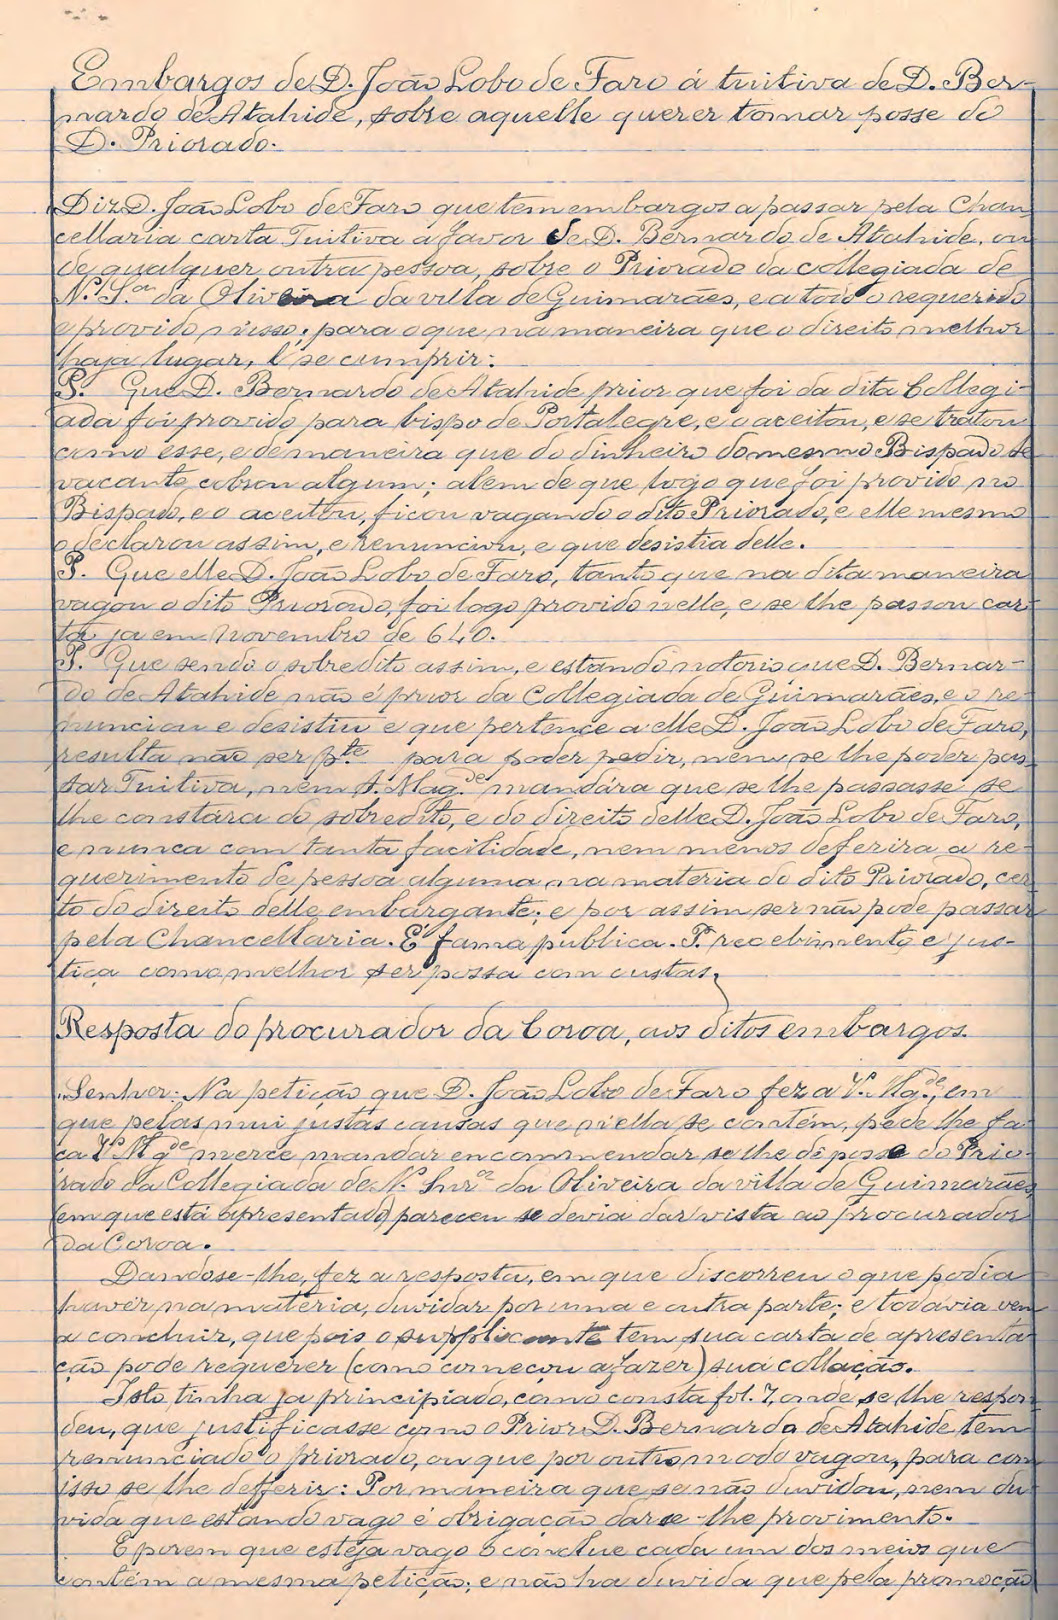 Embargos de D. João Lobo de Faro á tuitiva de D. Ber-
nardo de Atahide, sobre aquelle querer tomar posse do
D. Priorado.
Diz D. João Lobo de Faro que tem embargos a passar pela Chan
cellaria carta Tuitiva a favor de D. Bernardo de Atahide, ou
de qualquer outra pessoa, sobre o Priorado da collegiada de
N.ª S.ra da Oliveira da villa de Guimarães, e a todo o requerido
e provido nisso; para o que na maneira que o direito melhor
haja lugar, e se cumprir:
P. Que D. Bernardo de Atahide prior que foi da dita Collegi-
ada foi provido para bispo de Portalegre, e o aceitou, e se tratou
como esse, e de maneira que do dinheiro do mesmo Bispado se
vacante cobrou algum; alem de que logo que foi provido no
Bispado, e o aceitou, ficou vagando o dito Priorado, e elle mesmo
o declarou assim, e renunciou, e que desistia delle.
P. Que elle D. João Lobo de Faro, tanto que na dita maneira
vagou o dito Priorado, foi logo provido nelle, e se lhe passou car
ta ja em Novembro de 640.
P. Que sendo o sobredito assim, e estando notorio que D. Bernar-
do de Atahide não é prior da Collegiada de Guimarães, e o re-
nunciou e desistiu e que pertence a elle D. João Lobo de Faro,
resulta não ser p.te para poder pedir, nem se lhe poder pas
sar Tuitiva, nem S. Mag.de mandára que se lhe passasse se
lhe constára do sobredito, e do direito delle D. João Lobo de Faro,
e nunca com tanta facilidade, nem menos deferira a re-
querimento de pessoa alguma na materia do dito Priorado, cer
to do direito delle embargante; e por assim ser não pode passar
pela Chancellaria. E' fama publica. P. recebimento e jus-
tiça como melhor ser possa com custas,
Resposta do procurador da Coroa, aos ditos embargos.
"Senhor: Na petição que D. João Lobo de Faro fez a V. Mg.de, em
que pelas mui justas causas que n'ella se contém, pede lhe fa-
ça V.ª Mg.de merce mandar encommendar se lhe dê posse do Prio-
rado da Collegiada de N.ª Snr.ª da Oliveira da villa de Guimarães
(em que está apresentado) pareceu se devia dar vista ao procurador
da Coroa.
Dandose-lhe, fez a resposta, em que discorreu o que podia
haver na materia, duvidar por uma e outra parte; e todavia vem
a concluir, que pois o supplicante tem sua carta de apresenta-
ção pode requerer (como começou a fazer) sua collação.
Isto tinha ja principiado, como consta fol. 7, onde se lhe respon
deu, que justificasse como o Prior D. Bernardo de Atahide tem
renunciado o priorado, ou que por outro modo vagou, para com
isso se lhe defferir: Por maneira que se não duvidou, nem du
vida que estando vago é obrigação darse-lhe provimento.
E porem que esteja vago o conclue cada um dos meios que
contém a mesma petição; e não ha duvida que pela promoção